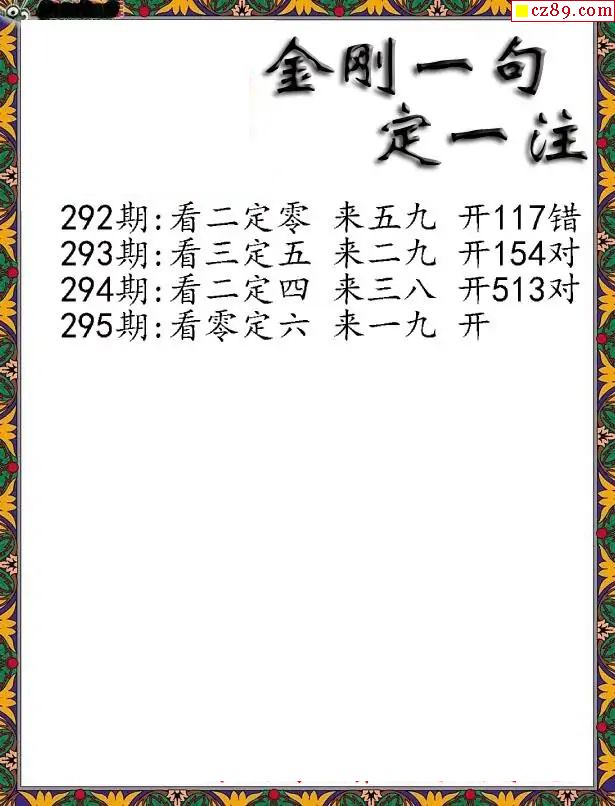 cz89.com
金刚一句
定一注
292期:看二定零 来五九 开117错
293期:看三定五 来二九 开154对
294期:看二定四 来三八 开513对
295期:看零定六 来一九 开